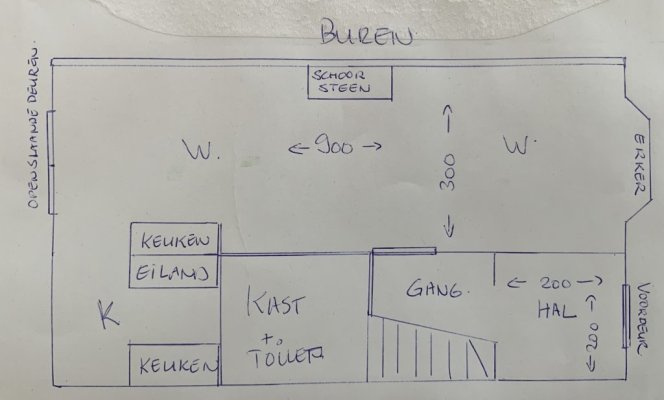 BUREN
SCHOOR
STEEN
OPENSLAANDE DEUREN.
W.
← 900 →
← 300 →
W.
ERKER
KEUKEN
EILAND
K
KAST
+.
TOILET
GANG.
← 200 →
HAL
← 200 →
VOORDEUR
KEUKEN